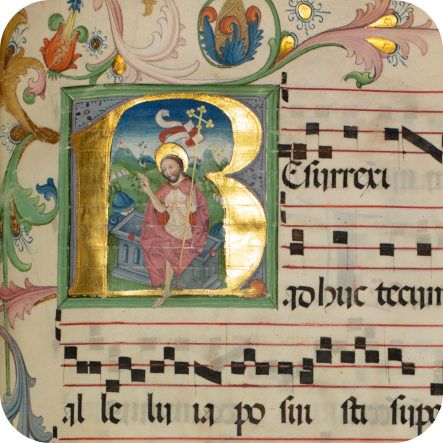 Resurrexi
adhuc tecum
al le lu ia po su i sti sup